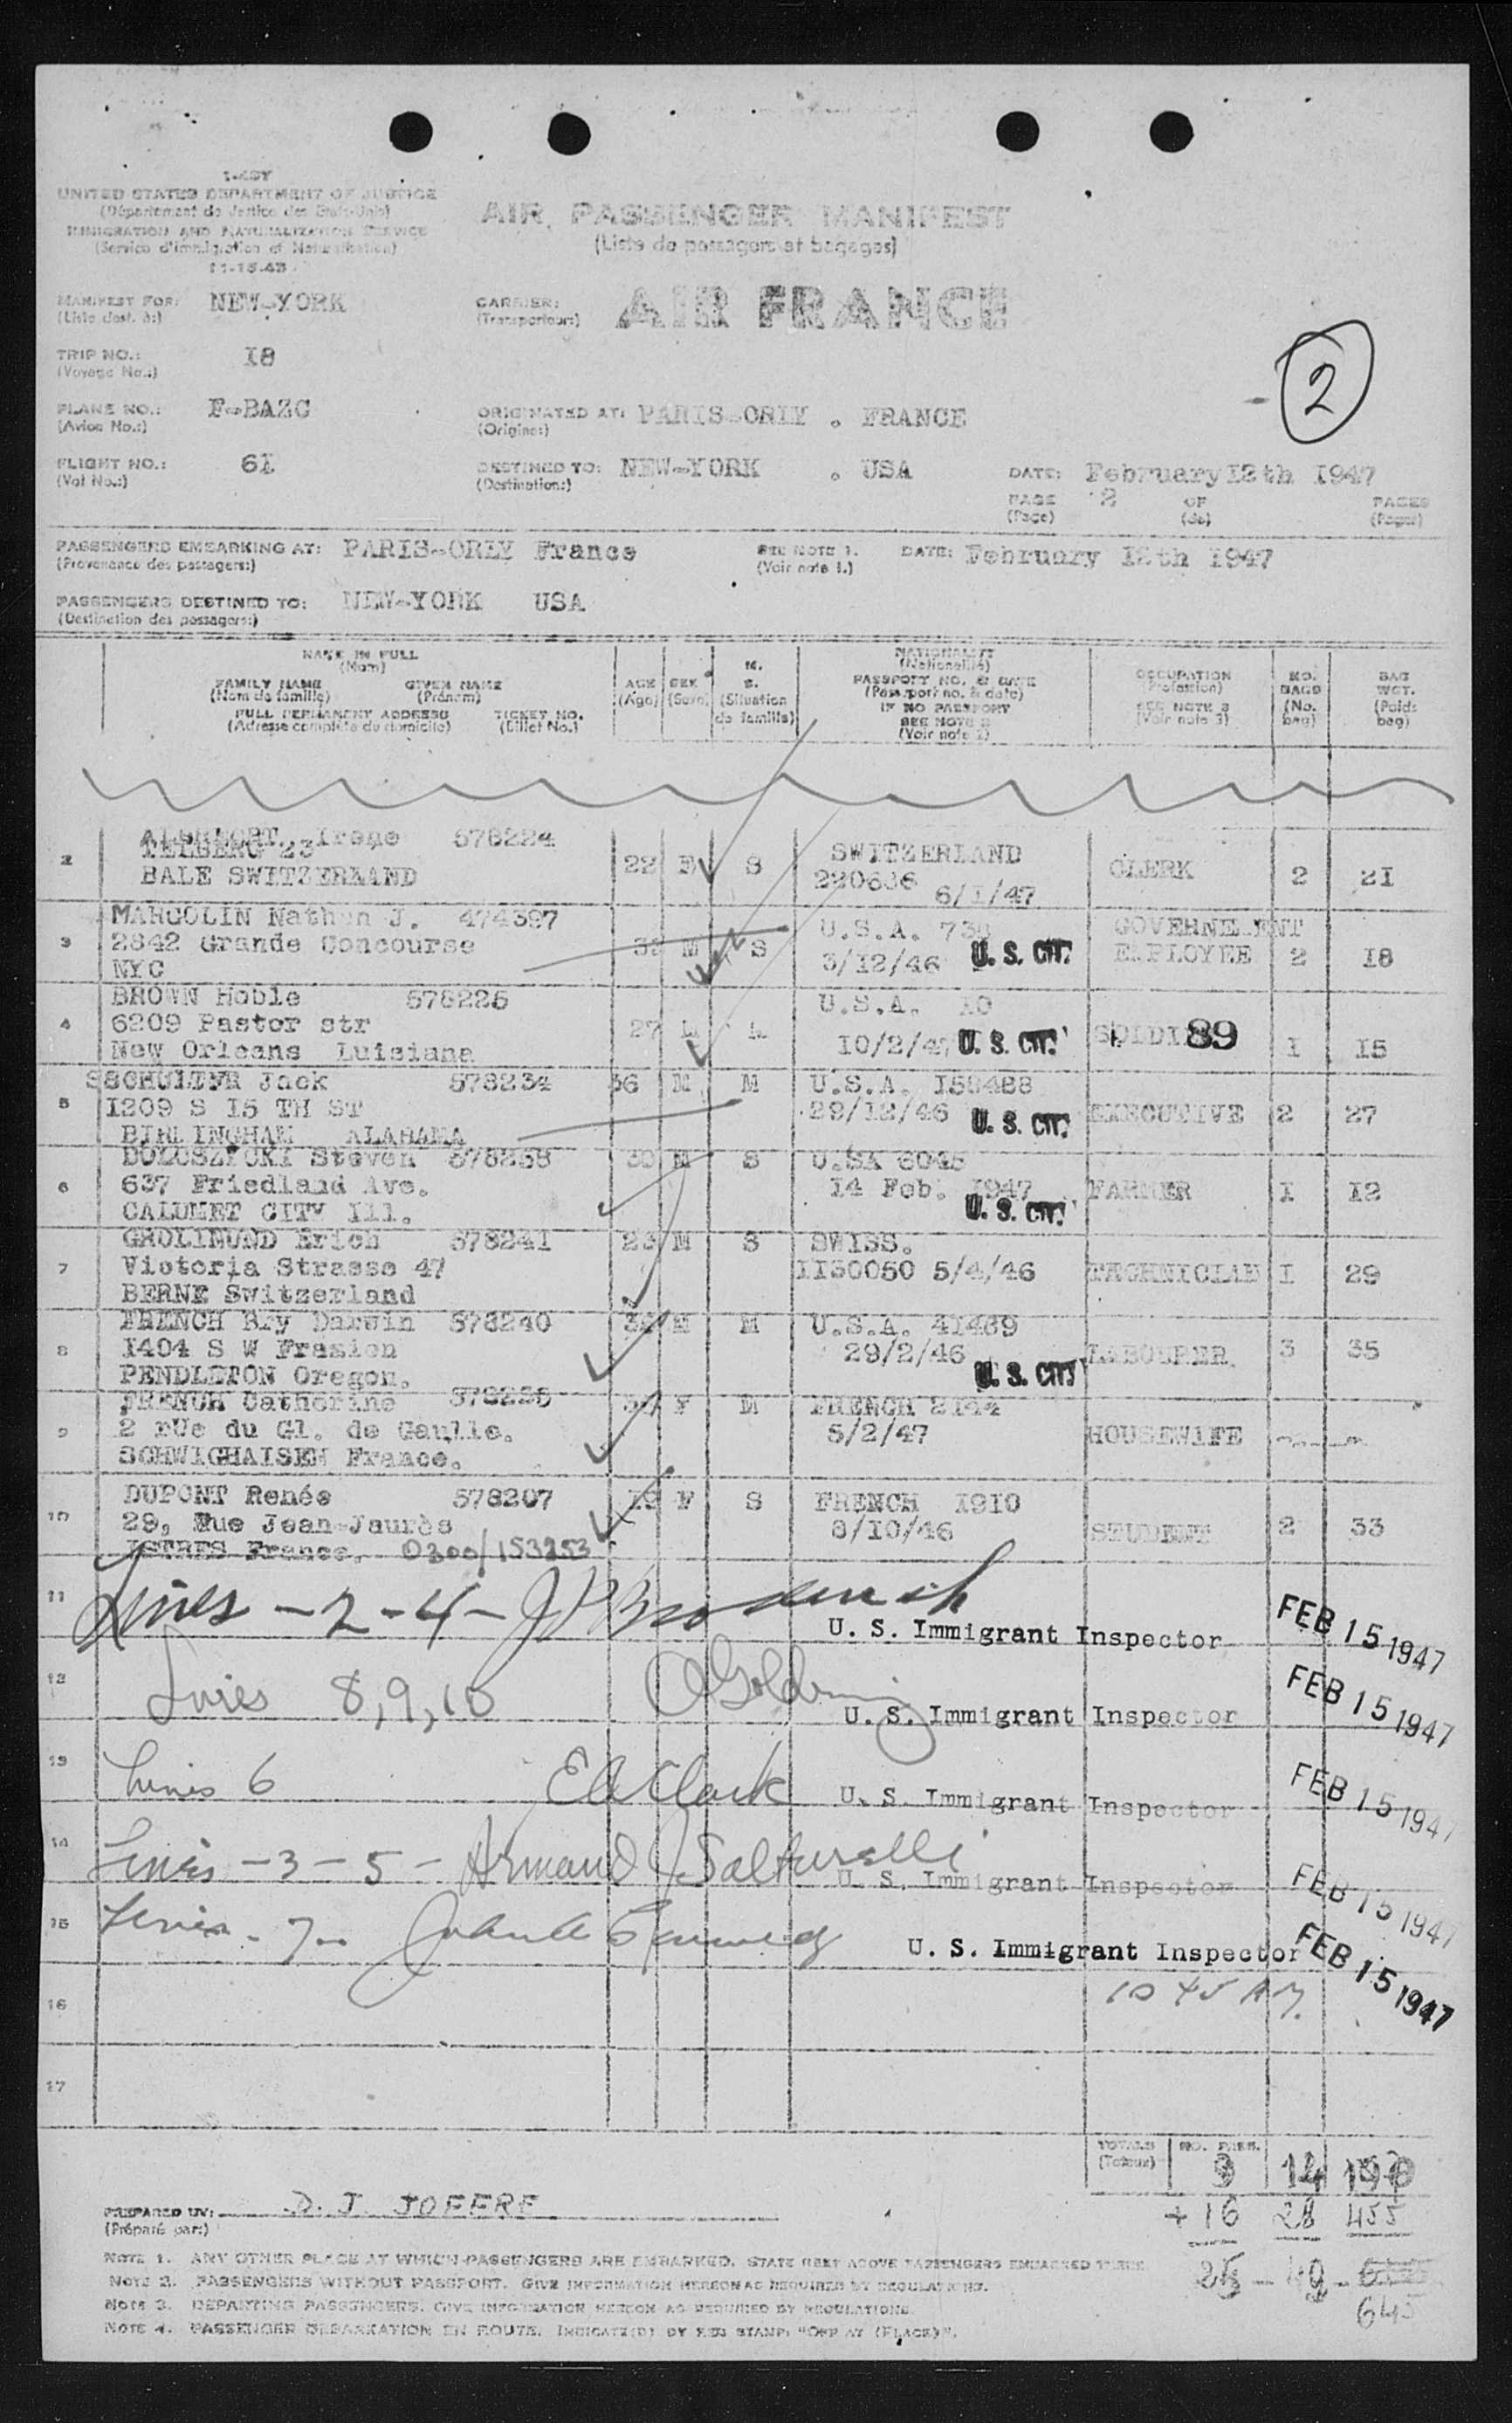 UNITED STATES DEPARTMENT OF JUSTICE
(Département de Justice des Etats-Unis)
IMMIGRATION AND NATURALIZATION SERVICE
(Service d'immigration et Naturalisation)
11-15-43
AIR PASSENGER MANIFEST
(Liste de passagers et bagages)
MANIFEST FOR: NEW-YORK
(Liste dest. à:)
CARRIER: AIR FRANCE
(Transporteur:)
TRIP NO.: I8
(Voyage No.:)
2
PLANE NO.: F-BAZC
(Avion No.:)
ORIGINATED AT: PARIS-ORLY . FRANCE
(Origine:)
FLIGHT NO.: 6I
(Vol No.:)
DESTINED TO: NEW-YORK . USA
(Destination:)
DATE: February I2th I947
PAGE 2 OF PAGES
(Page) (de) (Pages)
PASSENGERS EMBARKING AT: PARIS-ORLY France
(Provenance des passagers:)
SEE NOTE 1.
(Voir note 1.)
DATE: February I2th I947
PASSENGERS DESTINED TO: NEW-YORK USA
(Destination des passagers:)
NAME IN FULL
(Nom)
FAMILY NAME GIVEN NAME
(Nom de famille) (Prénom)
FULL PERMANENT ADDRESS TICKET NO.
(Adresse complète du domicile) (Billet No.)
AGE
(Age)
SEX
(Sexe)
M.
S.
(Situation
de famille)
NATIONALITY
(Nationalité)
PASSPORT NO. & DATE
(Passport no. & date)
IF NO PASSPORT
SEE NOTE 2
(Voir note 2)
OCCUPATION
(Profession)
SEE NOTE 3
(Voir note 3)
NO.
BAGS
(No.
bag)
BAG
WGT.
(Poids
bag)
2 Irene 578224 22 F S SWITZERLAND CLERK 2 2I
23
BALE SWITZERLAND 220636 6/I/47
3 MARGOLIN Nathan J. 474397 M S U.S.A. GOVERNEMENT EMPLOYEE 2 I8
2842 Grande Concourse 3/I2/46 U. S. CIT.
NYC
4 BROWN Hoble 578226 27 U.S.A. I0 89 I I5
6209 Pastor str I0/2/47 U. S. CIT.
New Orleans Luisiana
5 SCHULTER Jack 578234 36 M M U.S.A. I58488 EXECUTIVE 2 27
I209 S I5 TH ST 29/I2/46 U. S. CIT.
BIRMINGHAM ALABAMA
6 Steven 578238 30 M S U.SA 6045 FARMER I I2
637 Friedland Ave. I4 Feb. I947 U. S. CIT.
CALUMET CITY Ill.
7 GROLIMUND Erich 578241 23 M S SWISS. TECHNICIAN I 29
Victoria Strasse 47 II30050 5/4/46
BERNE Switzerland
8 FRENCH Ray Darwin 578240 M M U.S.A. 41469 LABOURER. 3 35
I404 S W Frasien 29/2/46 U. S. CIT.
PENDLETON Oregon.
9 FRENCH Catherine F M FRENCH 2I44 HOUSEWIFE
2 rUe du Gl. de Gaulle. 5/2/47
SCHWIGHAISEN France.
10 DUPONT Renée 578207 19 F S FRENCH I9I0 STUDENT 2 33
29, Rue Jean-Jaurès 8/I0/46
ISTRES France. 0300/153253
11 Lines - 2 - 4 -
U. S. Immigrant Inspector FEB 15 1947
12 Lines 8, 9, 10
U. S. Immigrant Inspector FEB 15 1947
13 Lines 6 E A Clark
U. S. Immigrant Inspector FEB 15 1947
14 Lines - 3 - 5 - Armand J Salturelli
U. S. Immigrant Inspector FEB 15 1947
15 Lines - 7 -
U. S. Immigrant Inspector FEB 15 1947
16 10 45 AM.
17
TOTALS
(Totaux)
NO. PASS.
9 14 190
+ 16 28 455
645
PREPARED BY: D. J. JOFFRE
(Préparé par:)
NOTE 1. ANY OTHER PLACE AT WHICH PASSENGERS ARE EMBARKED. STATE NEXT ABOVE PASSENGERS EMBARKED THERE
NOTE 2. PASSENGERS WITHOUT PASSPORT. GIVE INFORMATION HEREON AS REQUIRED BY REGULATIONS.
NOTE 3. DEPARTING PASSENGERS. GIVE INFORMATION HEREON AS REQUIRED BY REGULATIONS.
NOTE 4. PASSENGER DEBARKATION EN ROUTE. INDICATE(D) BY RED STAMP: "OFF AT (PLACE)".